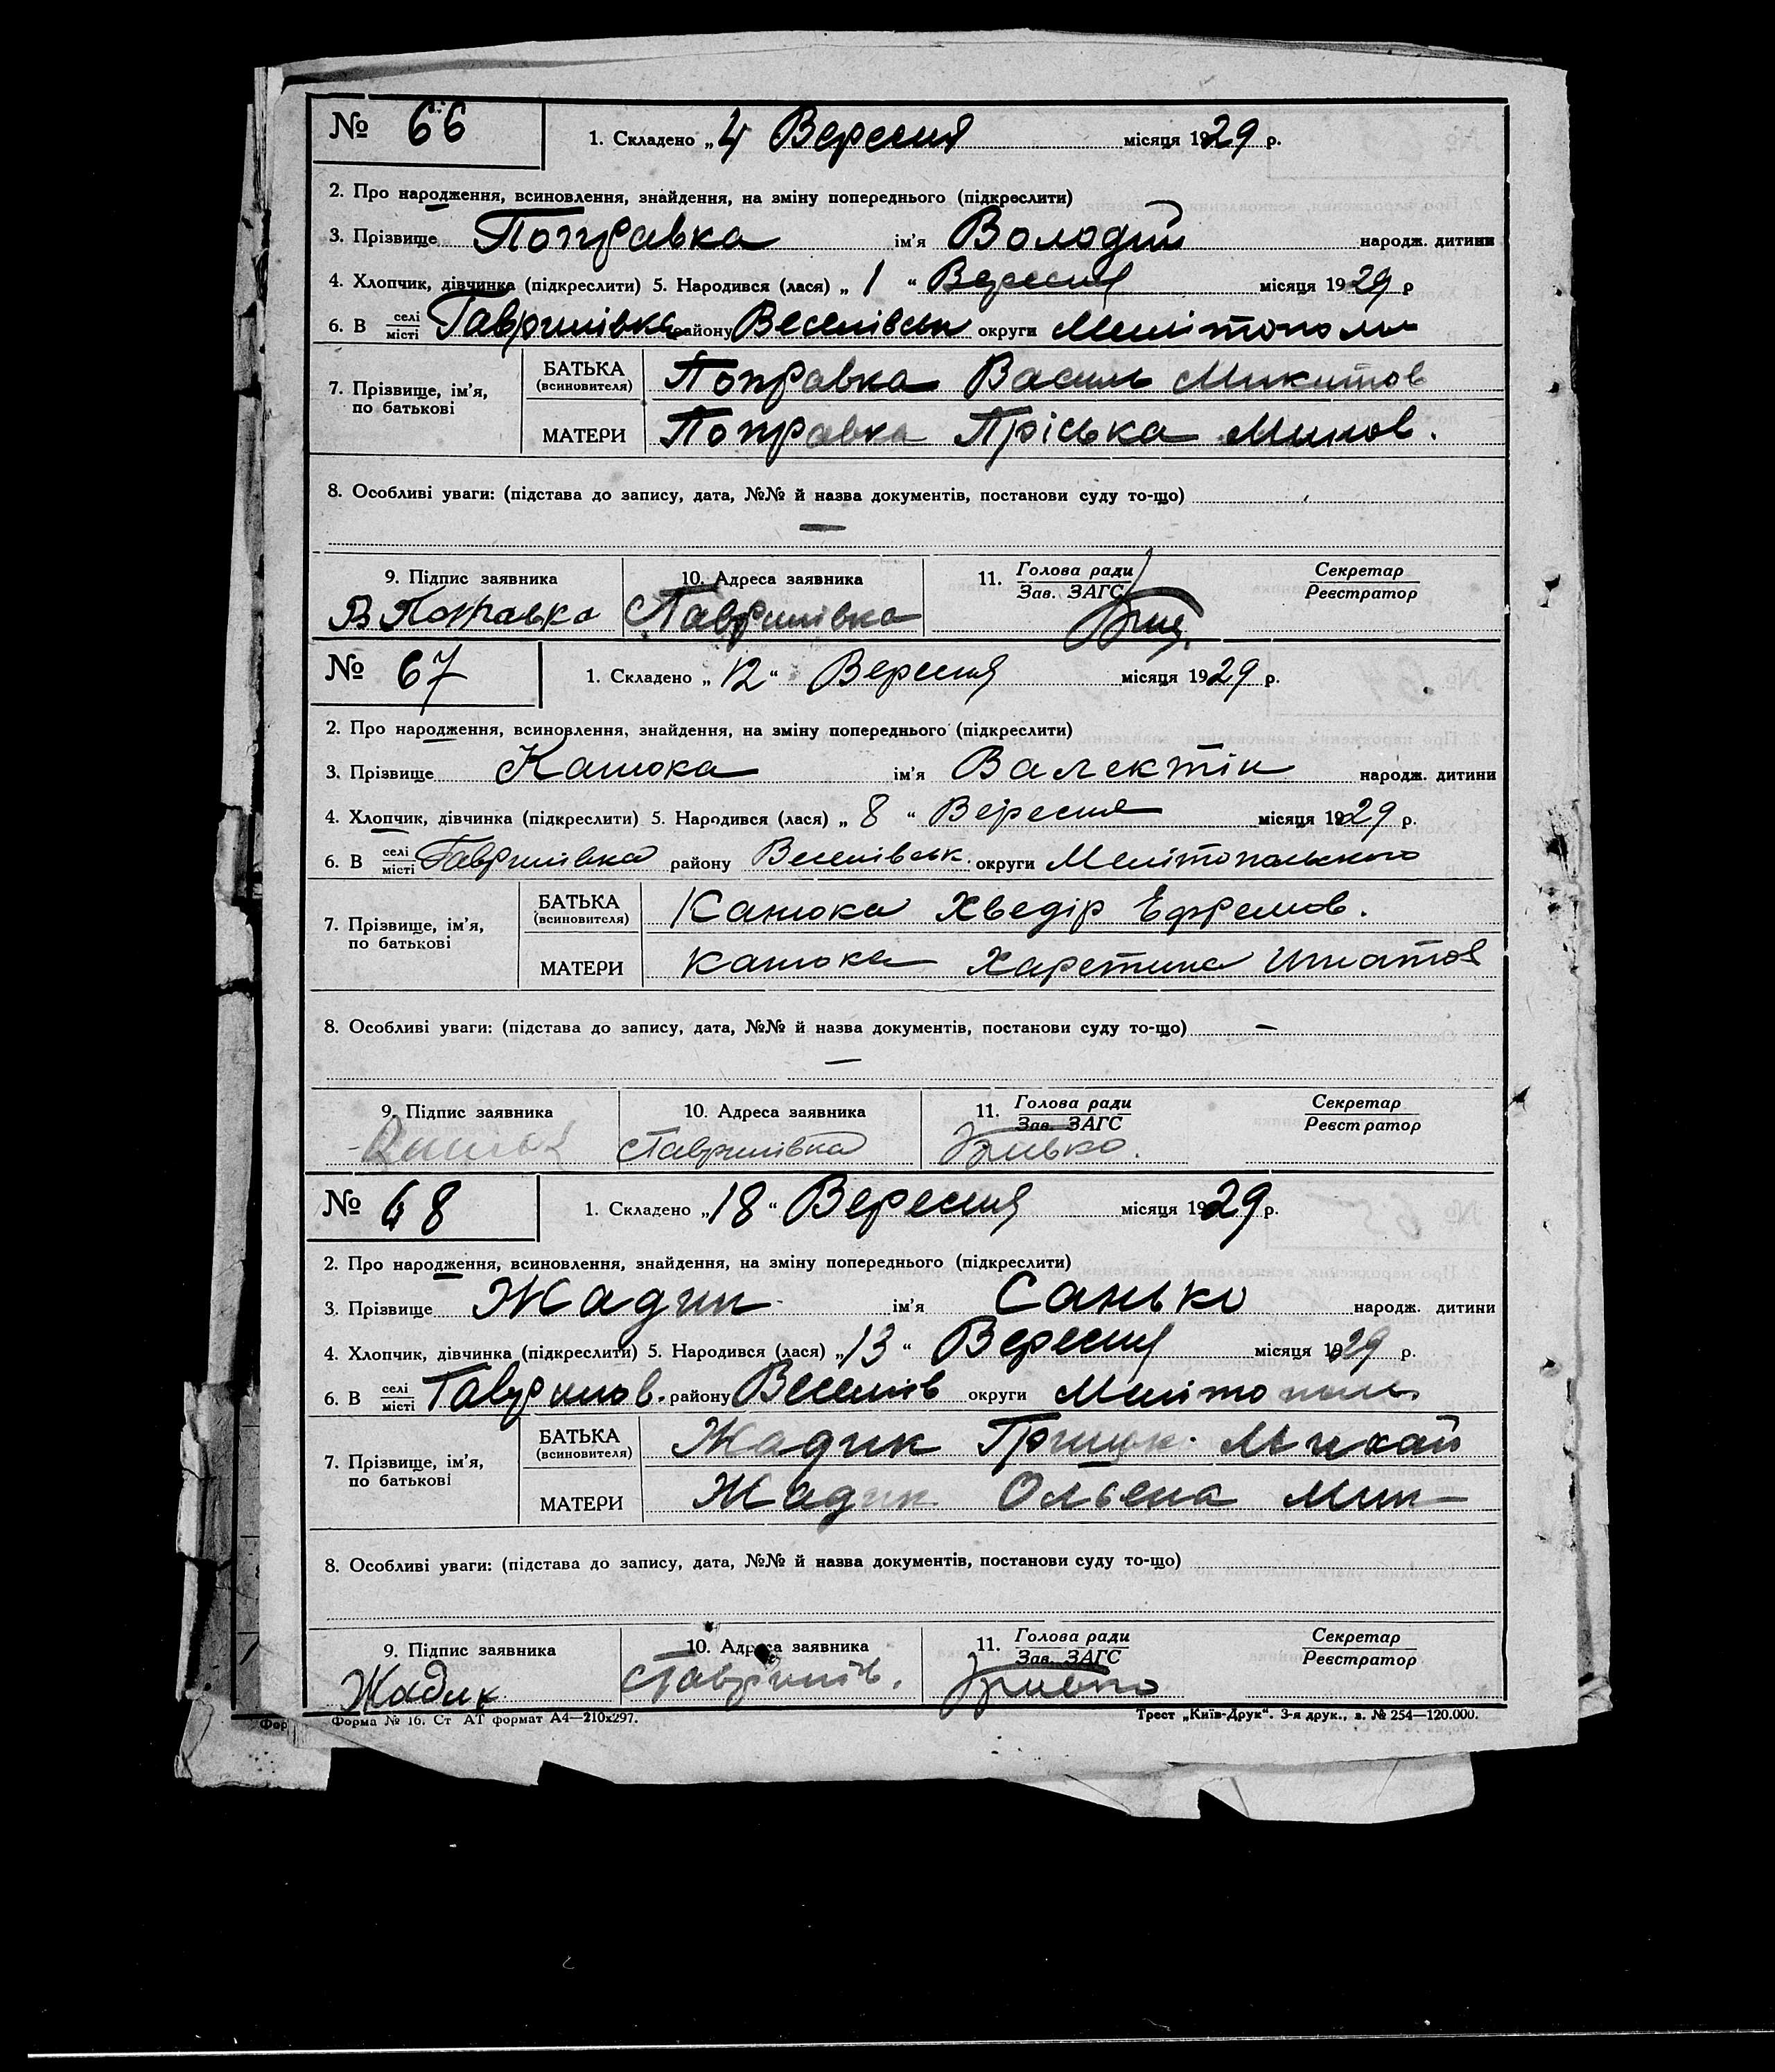 № 66 1. Складено „4 Вересня місяця 1929 р.
2. Про народження, всиновлення, знайдення, на зміну попереднього (підкреслити)
3. Прізвище Поправка ім'я Володим народж. дитини
4. Хлопчик, дівчинка (підкреслити) 5. Народився (лася) „ 1 “ Вересня місяця 1929 р
6. В селі місті Гаврилівка району Веселівськ округи Мелітополь
7. Прізвище, ім'я, по батькові БАТЬКА (всиновителя) Поправка Василь Микитов
МАТЕРИ Поправка Пріська
8. Особливі уваги: (підстава до запису, дата, №№ й назва документів, постанови суду то-що)
—
9. Підпис заявника 10. Адреса заявника 11. Голова ради Зав. ЗАГС Секретар Реєстратор
В Поправка Гаврилівка
№ 67 1. Складено „12“ Вересня місяця 1929 р.
2. Про народження, всиновлення, знайдення, на зміну попереднього (підкреслити)
3. Прізвище Канюка ім'я Валектін народж. дитини
4. Хлопчик, дівчинка (підкреслити) 5. Народився (лася) „ 8 “ Вересня місяця 1929 р.
6. В селі місті Гаврилівка району Веселівськ. округи Мелітопольского
7. Прізвище, ім'я, по батькові БАТЬКА (всиновителя) Канюка Хведір Ефремов.
МАТЕРИ Канюка Харетина Игнатов
8. Особливі уваги: (підстава до запису, дата, №№ й назва документів, постанови суду то-що) —
—
9. Підпис заявника 10. Адреса заявника 11. Голова ради Зав. ЗАГС Секретар Реєстратор
Гаврилівка
№ 68 1. Складено „18“ Вересня місяця 1929 р.
2. Про народження, всиновлення, знайдення, на зміну попереднього (підкреслити)
3. Прізвище Жадик ім'я Санько народж. дитини
4. Хлопчик, дівчинка (підкреслити) 5. Народився (лася) „13 “ Вересня місяця 1929 р.
6. В селі місті Гаврилов. району Веселів округи Мелітополь
7. Прізвище, ім'я, по батькові БАТЬКА (всиновителя) Жадик Грицьк. Михай
МАТЕРИ Жадик Ольена
8. Особливі уваги: (підстава до запису, дата, №№ й назва документів, постанови суду то-що)
9. Підпис заявника 10. Адреса заявника 11. Голова ради Зав. ЗАГС Секретар Реєстратор
Жадик Гаврилів.
Форма № 16. Ст АТ формат А4—210х297. Трест „Київ-Друк“. 3-я друк., з. № 254—120.000.